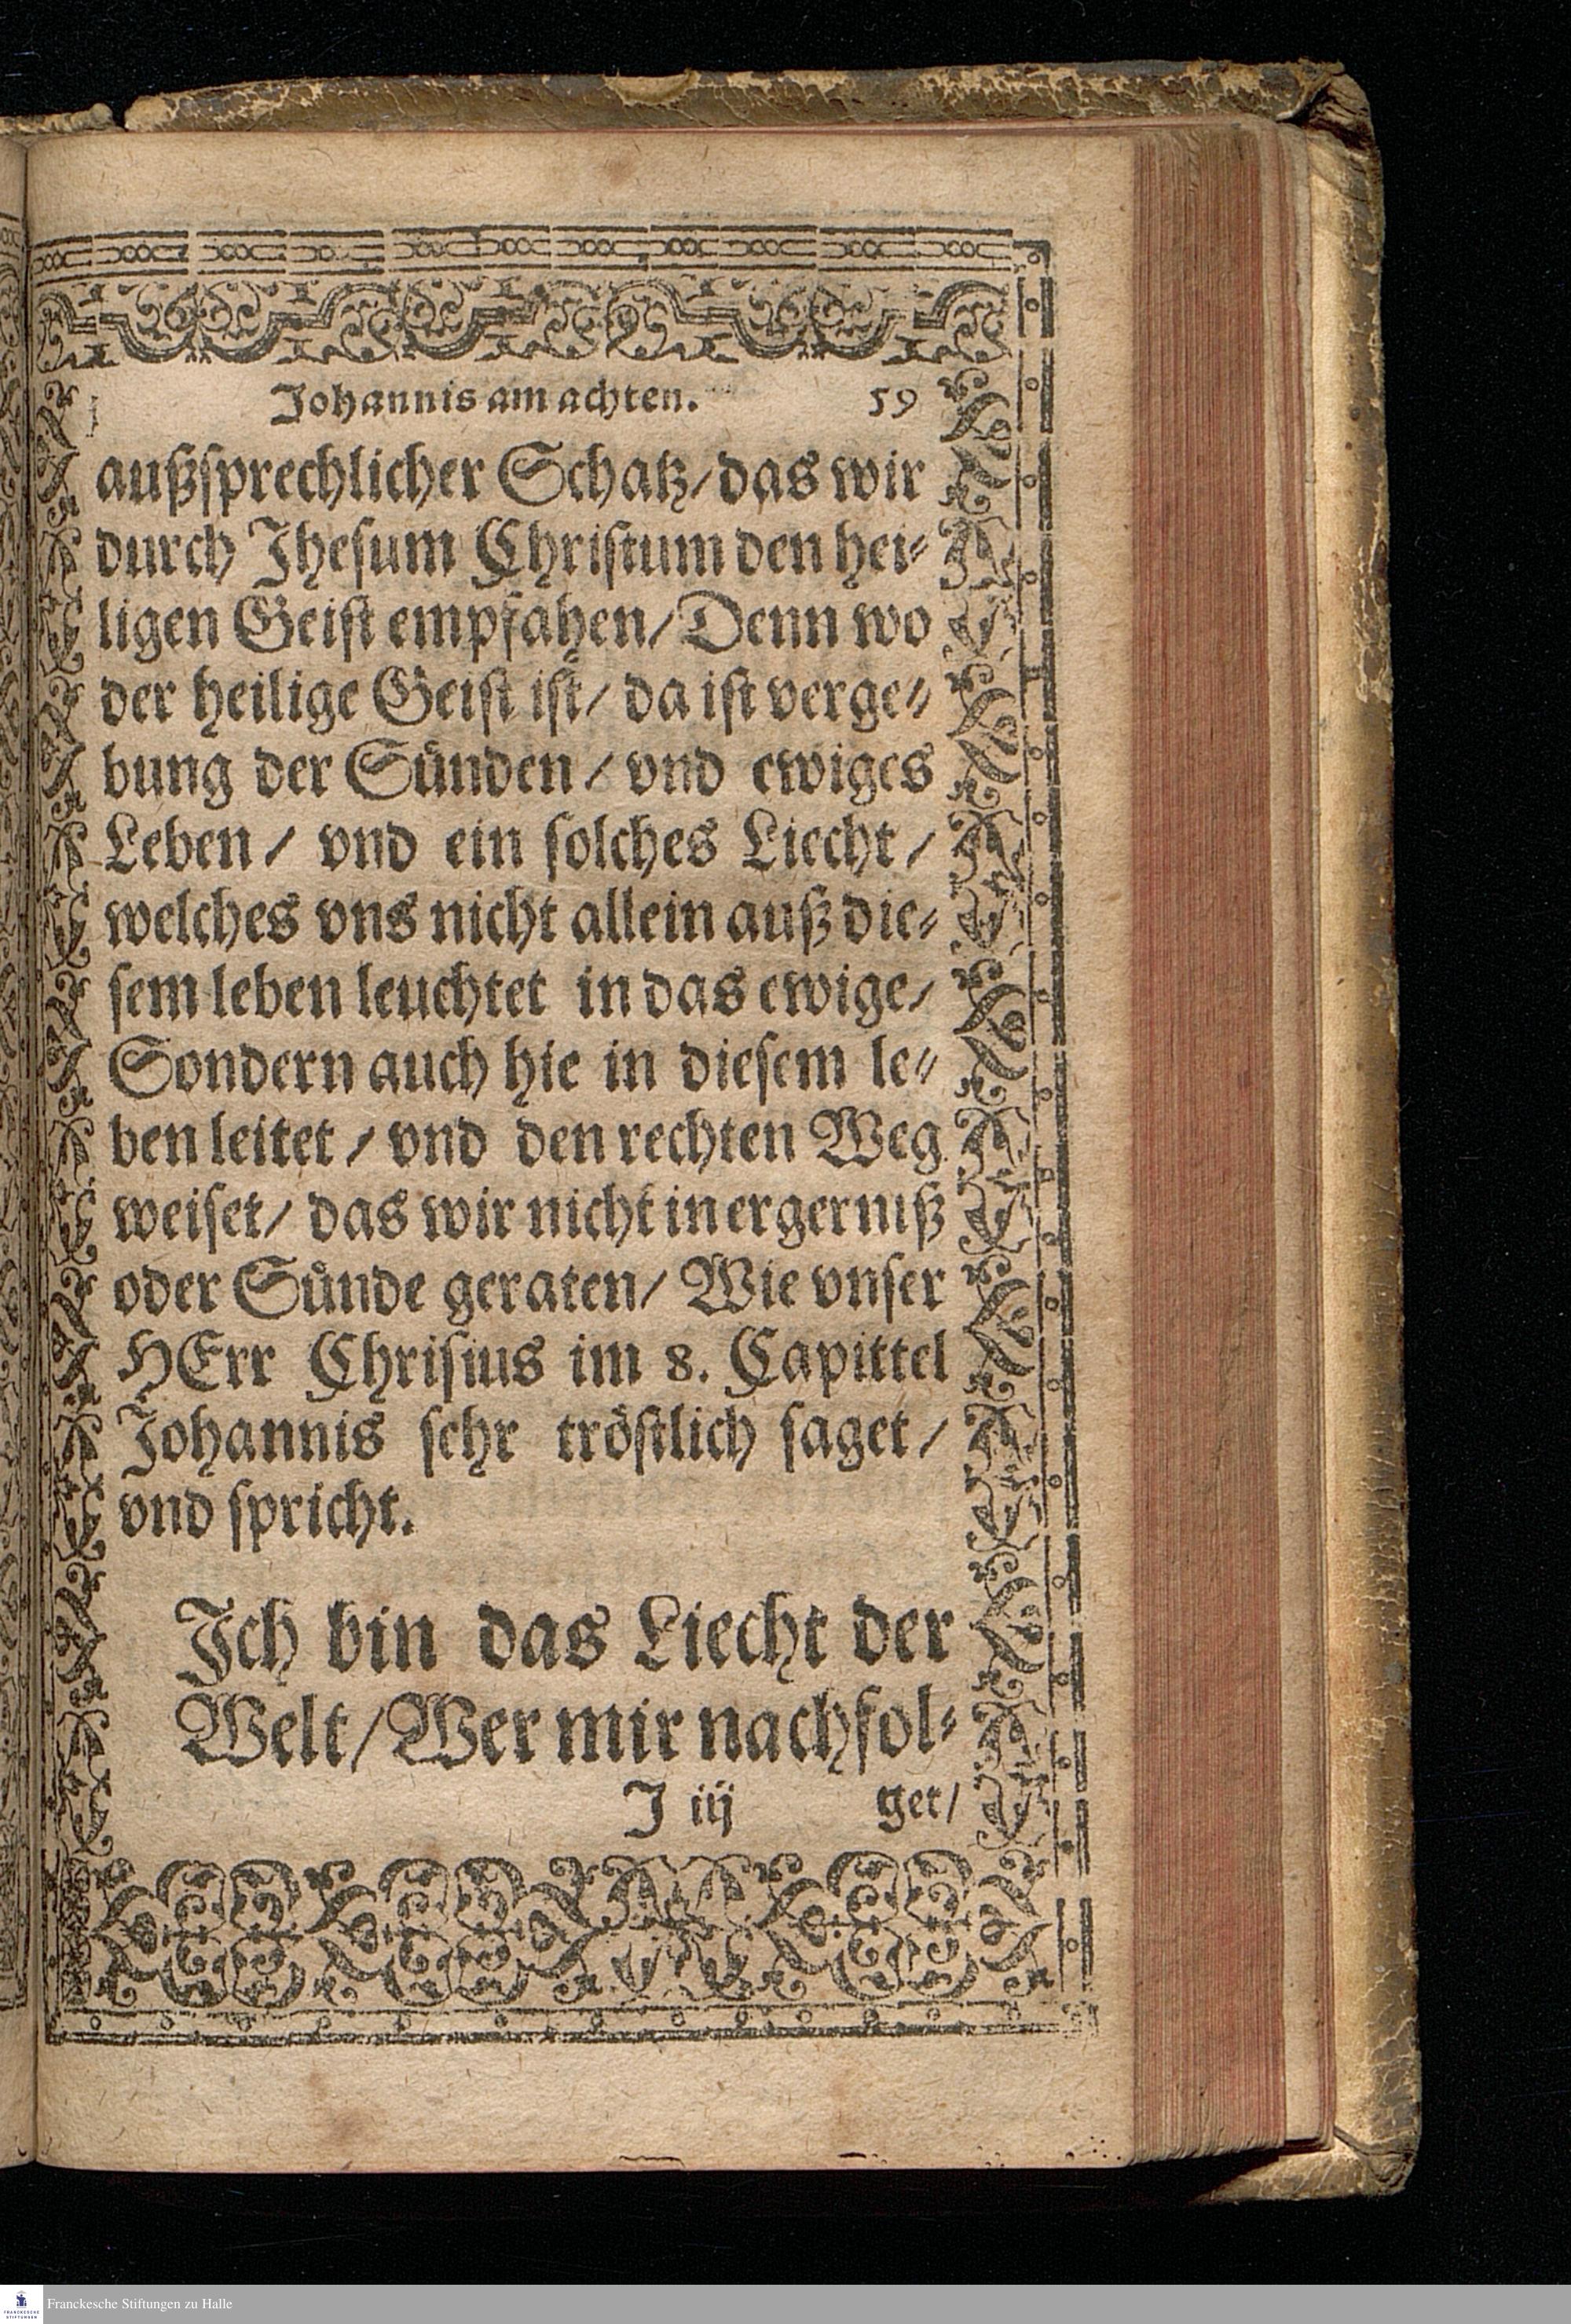 Johannis am achten. 59
außsprechlicher Schatz/ das wir
durch Jhesum Christum den hei-
ligen Geist empfahen/ Denn wo
der heilige Geist ist/ da ist verge-
bung der Sünden/ vnd ewiges
Leben/ vnd ein solches Liecht/
welches vns nicht allein auß die-
sem leben leuchtet in das ewige/
Sondern auch hie in diesem le-
ben leitet/ vnd den rechten Weg
weiset/ das wir nicht in ergerniß
oder Sünde geraten/ Wie vnser
HErr Christus im 8. Capittel
Johannis sehr tröstlich saget/
vnd spricht.
Ich bin das Liecht der
Welt/ Wer mir nachfol-
J iij get/
Franckesche Stiftungen zu Halle